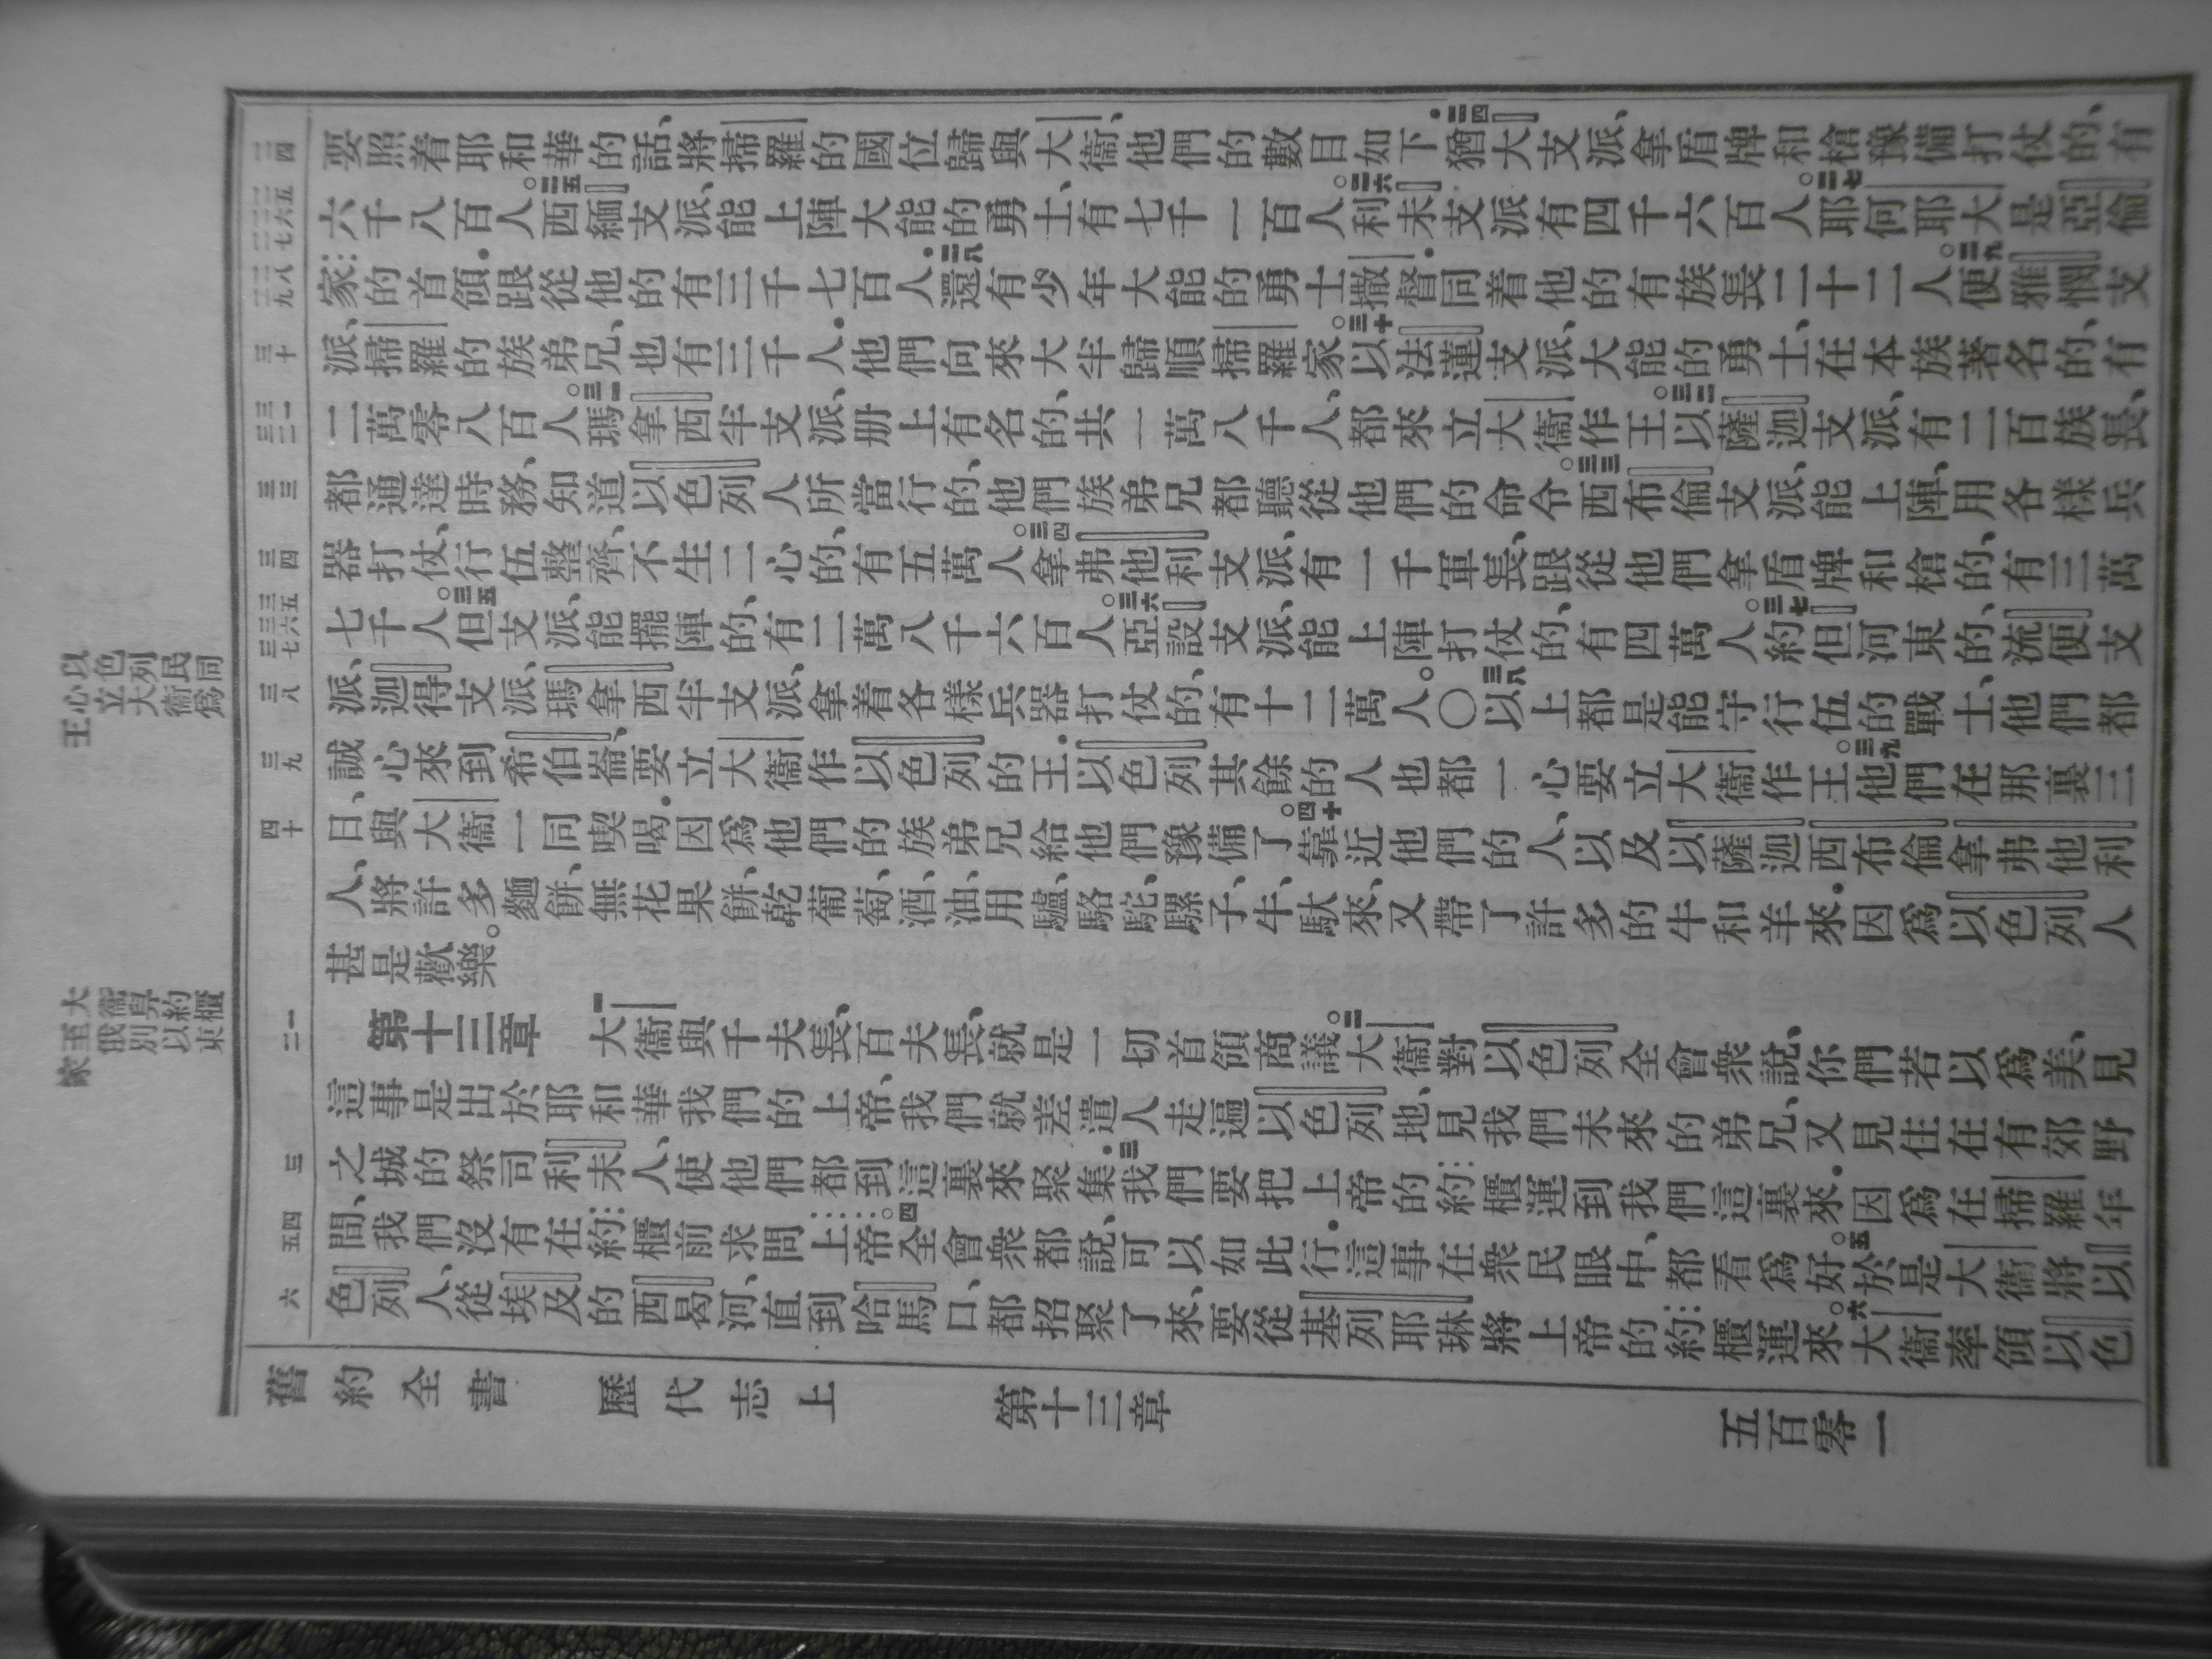 以色列民同
心立大衞爲
王
大衞舁約櫃
至俄別以東
家
二四
二五二六二七
二八二九
三十
三一三二
三三
三四
三五三六三七
三八
三九
四十
一二
三
四五
六
要照着耶和華的話、將掃羅的國位歸與大衞、他們的數目如下.二四猶大支派、拿盾牌和槍豫備打仗的、有
六千八百人。二五西緬支派、能上陣大能的勇士、有七千一百人。二六利未支派有四千六百人。二七耶何耶大是亞倫
家的首領.跟從他的有三千七百人.二八還有少年大能的勇士撒督.同着他的有族長二十二人。二九便雅憫支
派、掃羅的族弟兄、也有三千人.他們向來大半歸順掃羅家。三十以法蓮支派、大能的勇士、在本族著名的、有
二萬零八百人。三一瑪拿西半支派、册上有名的、共一萬八千人、都來立大衞作王。三二以薩迦支派、有二百族長、
都通達時務、知道以色列人所當行的、他們族弟兄都聽從他們的命令。三三西布倫支派、能上陣、用各樣兵
器打仗、行伍整齊、不生二心的、有五萬人。三四拿弗他利支派、有一千軍長、跟從他們拿盾牌和槍的、有三萬
七千人。三五但支派、能擺陣的、有二萬八千六百人。三六亞設支派、能上陣打仗的、有四萬人。三七約但河東的、流便支
派、迦得支派、瑪拿西半支派、拿着各樣兵器打仗的、有十二萬人。〇三八以上都是能守行伍的戰士、他們都
誠心來到希伯崙、要立大衞作以色列的王.以色列其餘的人也都一心要立大衞作王。三九他們在那裏三
日、與大衞一同喫喝.因爲他們的族弟兄給他們豫備了。四十靠近他們的人、以及以薩迦西布倫拿弗他利
人、將許多麵餅、無花果餅、乾葡萄、酒、油、用驢、駱駝、騾子、牛、馱來、又帶了許多的牛和羊來.因爲以色列人
甚是歡樂。
第十三章 一大衞與千夫長、百夫長、就是一切首領商議。二大衞對以色列全會衆說、你們若以爲美、見
這事是出於耶和華我們的上帝、我們就差遣人走遍以色列地、見我們未來的弟兄、又見住在有郊野
之城的祭司利未人、使他們都到這裏來聚集.三我們要把上帝的約櫃運到我們這裏來.因爲在掃羅年
間、我們沒有在約櫃前求問上帝。四全會衆都說、可以如此行.這事在衆民眼中、都看爲好。五於是大衞將以
色列人、從埃及的西曷河、直到哈馬口、都招聚了來、要從基列耶琳將上帝的約櫃運來。六大衞率領以色
舊約全書 歷代志上 第十三章 五百零一